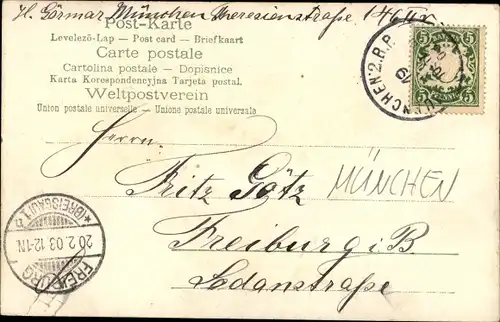 H. Görmar München Theresienstraße
Post-Karte
Levelező-Lap — Post card — Briefkaart
Carte postale
Cartolina postale — Dopisnice
Karta Korespondencyjna Tarjeta postal.
Weltpostverein
Union postale universelle — Unione postale universale
5 5
5 5
MÜNCHEN.2.B.P.
Herrn
Fritz Götz
MÜNCHEN
Freiburg i. B.
Sedanstraße
*(BREISGAU)1.
20.2.03.12-1N
FREIBURG